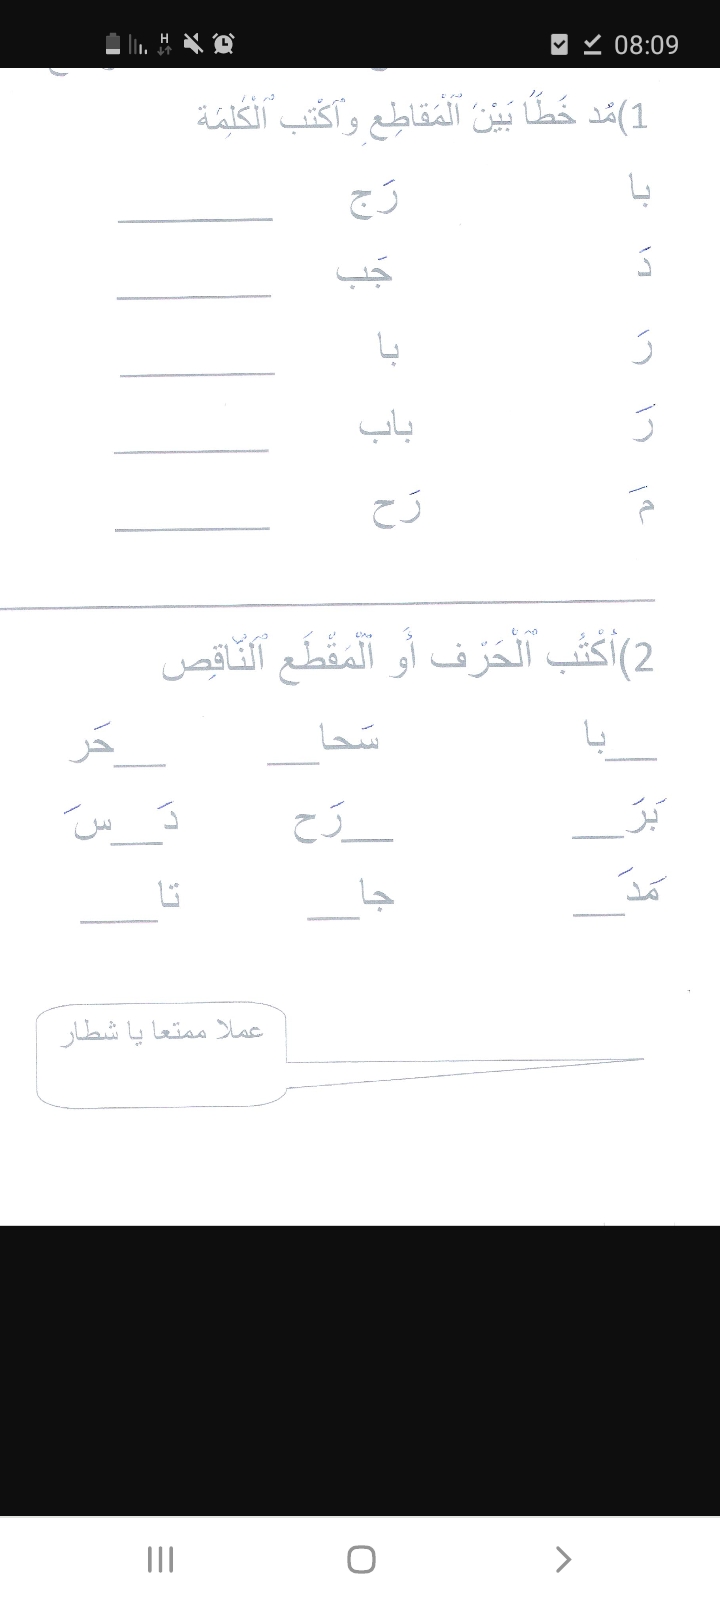 H 08:09
1)مُد خَطًّا بَيْنَ ٱلْمَقاطِعِ وٱكْتب ٱلْكَلِمَة
با رَج ________
دَ جَب ________
رَ با ________
رَ باب ________
مَ رَح ________
2)أُكْتُب ٱلْحَرْف أَو ٱلْمَقْطَع ٱلنّاقِص
__با سَحا__ __حَر
بَرَ__ __رَح دَ__سَ
مَدَ__ جا__ تا__
عملا ممتعا يا شطار